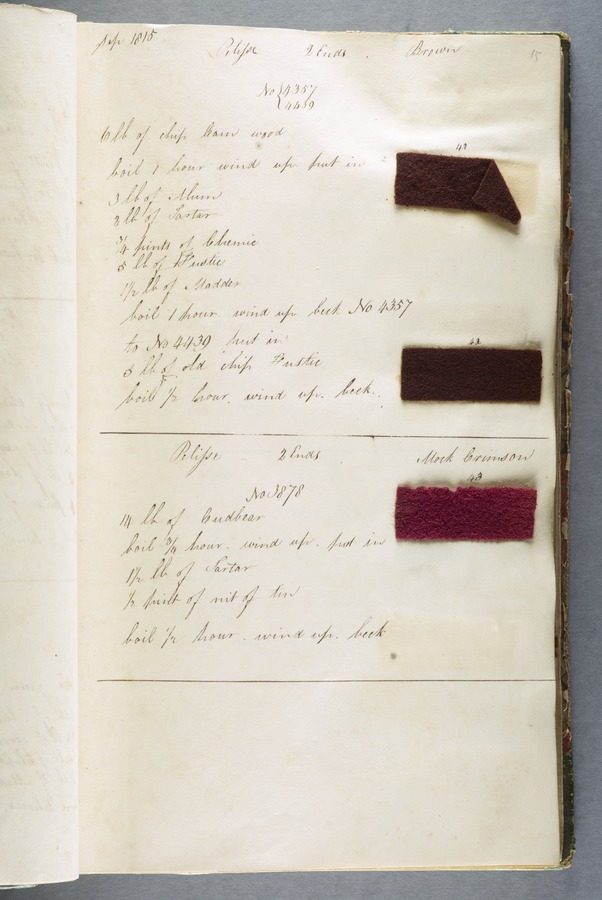 Sep 1815
Pelisse 2 Ends. Brown 15
No { 4357
4439
6 lb of chip Cam wood
boil 1 hour wind up put in
3 lb of Alum
2 lb of Tartar
3/4 pints of Chemic
5 lb of Fustic
1/2 lb of Madder
boil 1 hour wind up beck No 4357
to No 4439 put in
3 lb of old chip Fustic
boil 1/2 hour. wind up. beck.
41
42
Pelisse 2 Ends Mock Crimson
43
No 3878
14 lb of Cudbear
boil 3/4 hour. wind up. put in
1 1/2 lb of Tartar
1/2 pint of nit of tin
boil 1/2 hour. wind up. beck